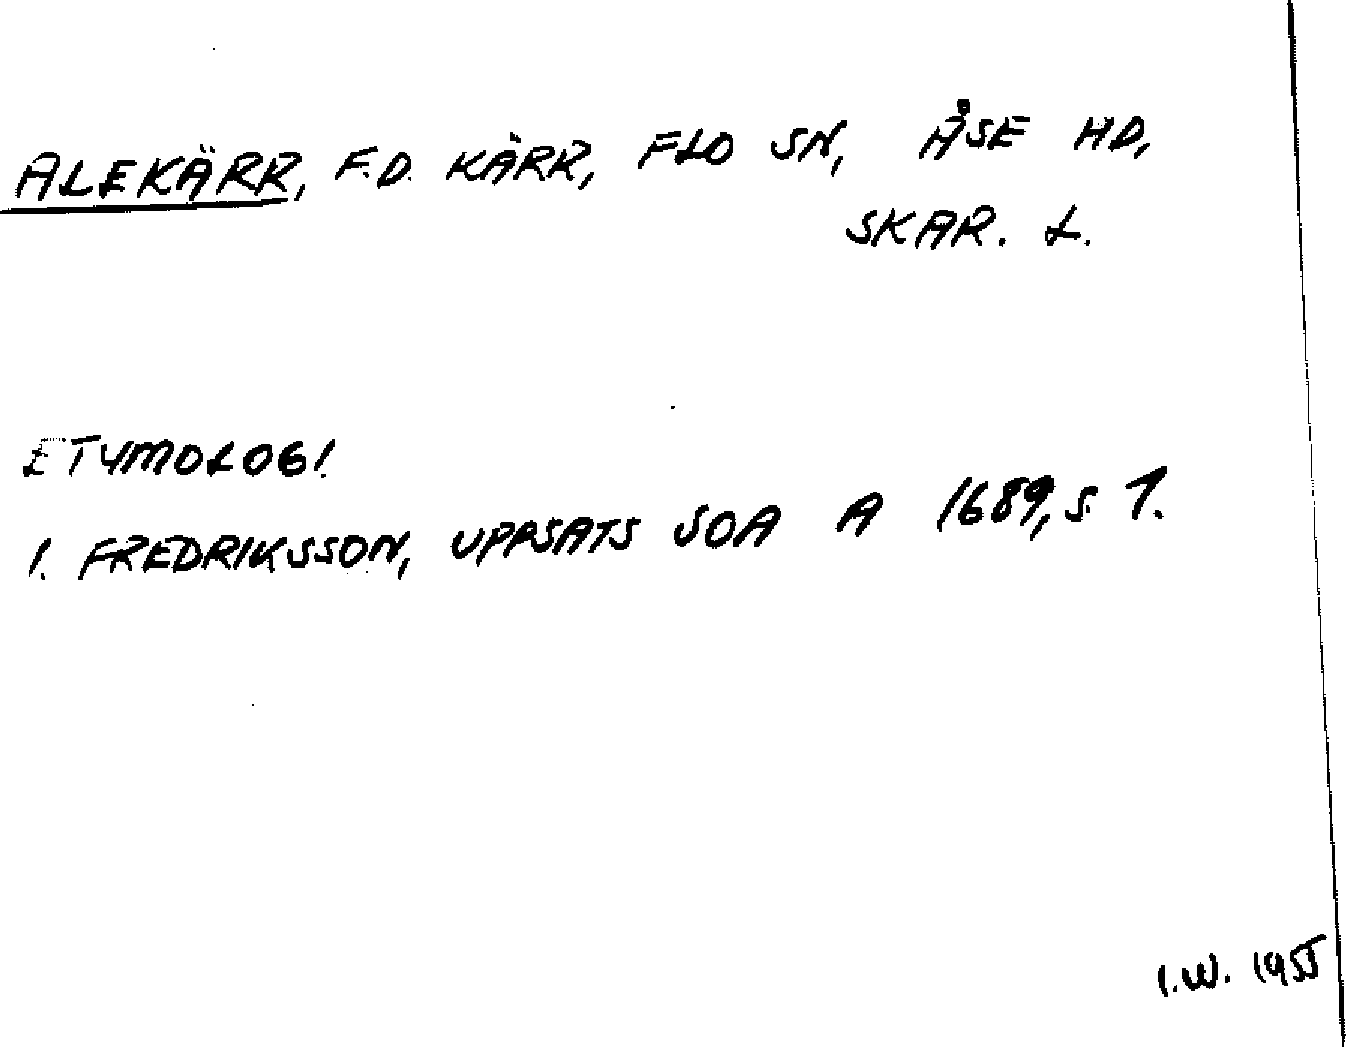 ALEKÄRR, F.D. KÄRR, FLO SN, ÅSE HD,
SKAR. L.
ETYMOLOGI.
I. FREDRIKSSON, UPPSATS SOA A 1689, S. 7.
I.W. 1955